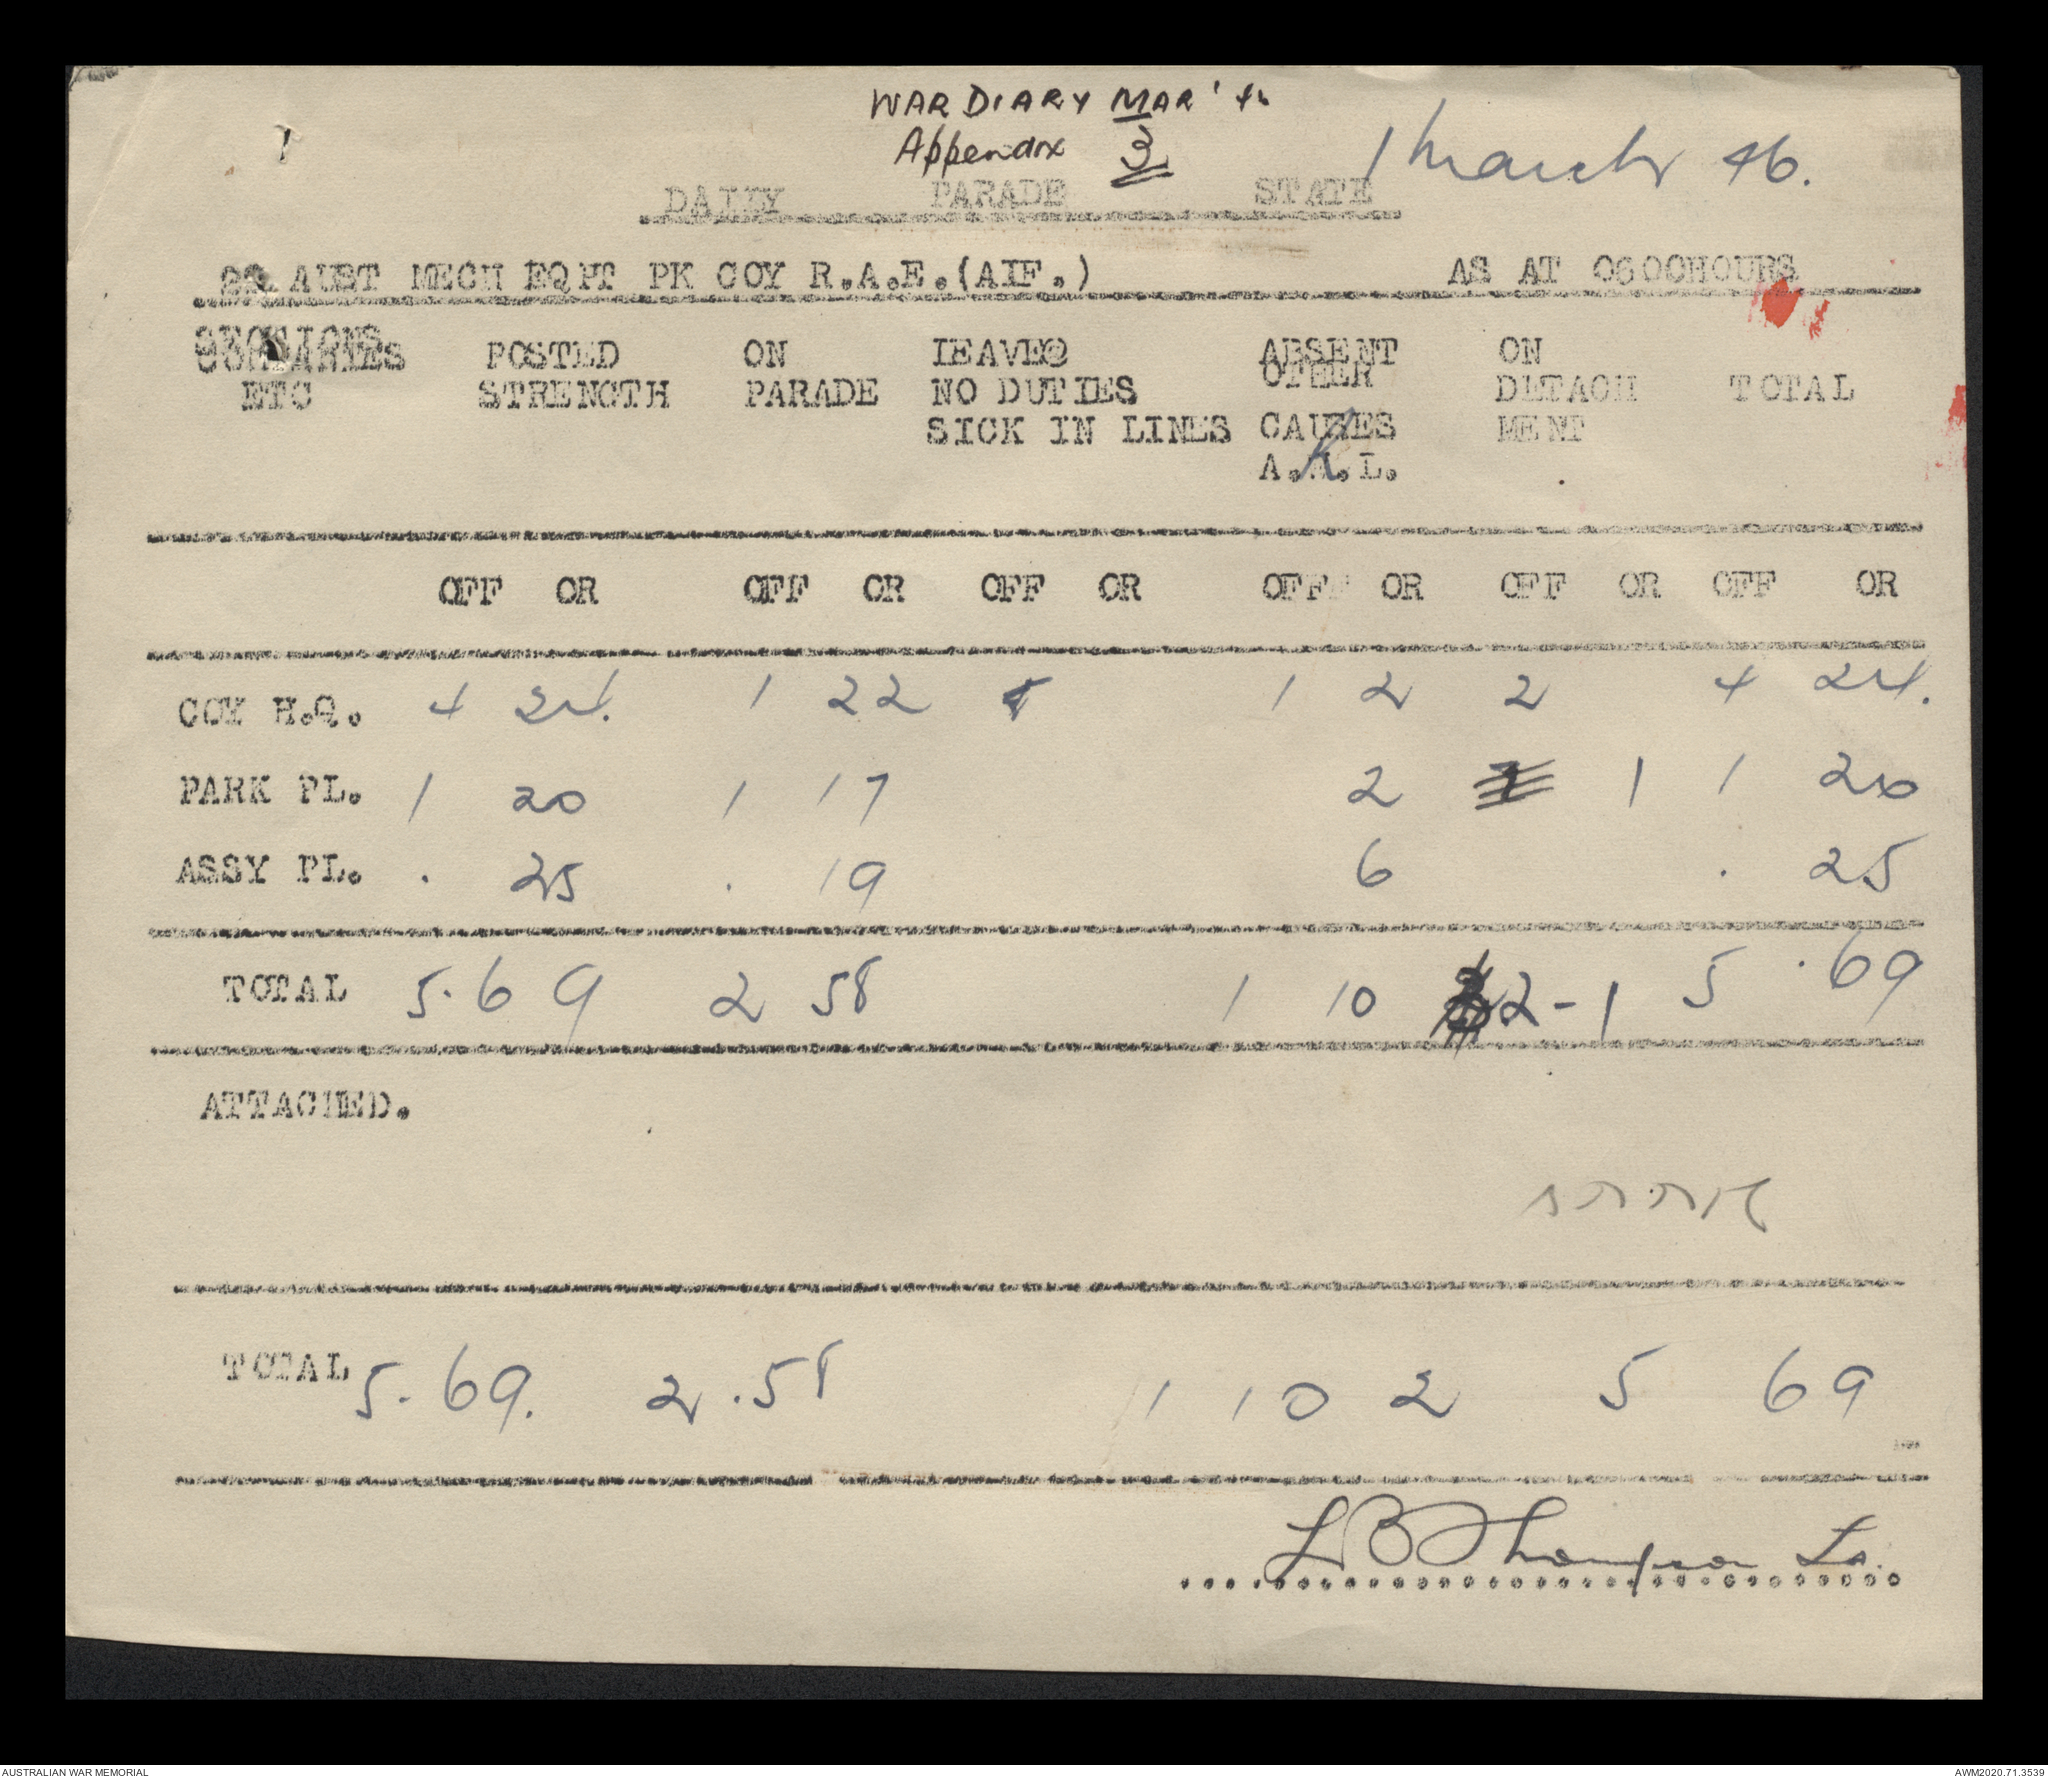 WAR DIARY MAR '46
Appendix 3
1 March 46.
DAILY PARADE STATE
22 AUST MECH EQPT PK COY R.A.E.(AIF.) AS AT 0600HOURS
SECTIONS
COMPANIES POSTED ON LEAVE@ ABSENT ON
ETC STRENGTH PARADE NO DUTIES OTHER DETACH TOTAL
SICK IN LINES CAUSES MENT
A. .L.
OFF OR OFF OR OFF OR OFF OR OFF OR OFF OR
COY H.Q. 4 24. 1 22 1 2 2 4 24.
PARK PL. 1 20 1 17 2 1 1 20
ASSY PL. . 25 . 19 6 . 25
TOTAL 5.69 2 58 1 10 2-1 5 .69
ATTACHED.
TOTAL 5.69. 2.58 1 10 2 5 69
L B Thompson Lt.
AUSTRALIAN WAR MEMORIAL AWM2020.71.3539